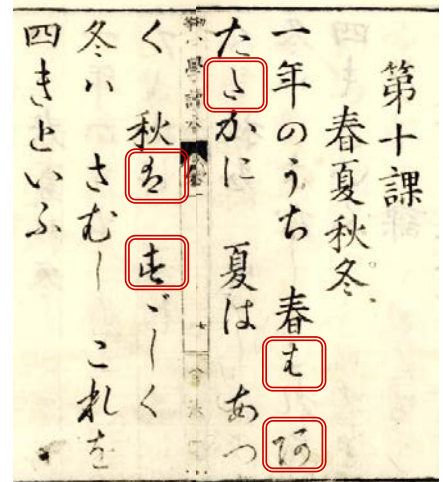 第十課
春夏秋冬、
一年のうち 春は あ
たたかに 夏は あつ
小學讀本
七
く 秋は すゞしく
冬ハ さむし これを
四きといふ